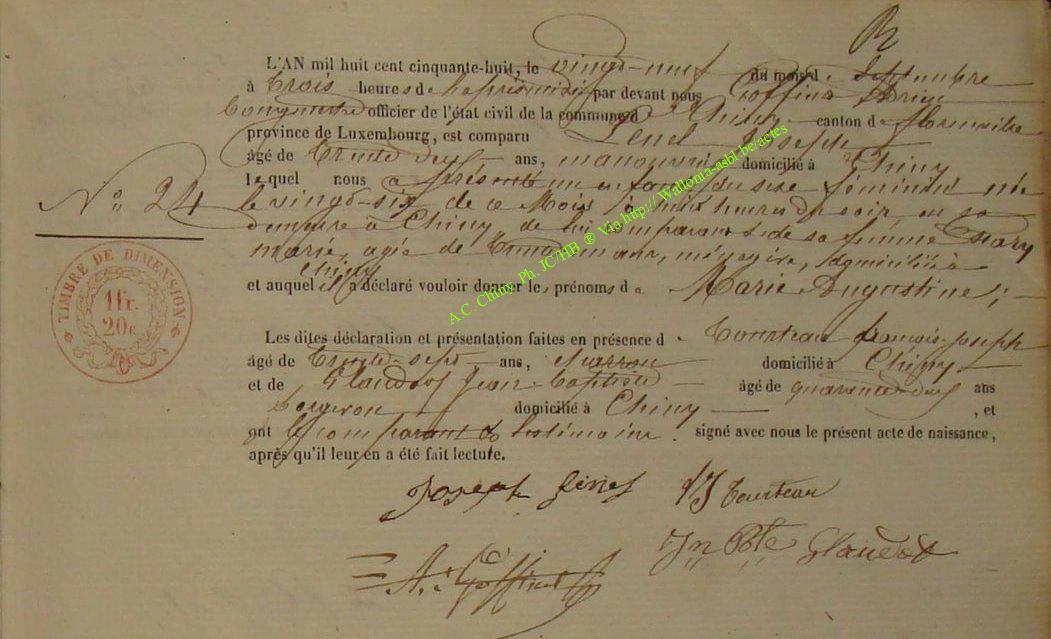 L'AN mil huit cent cinquante-huit, le vingt-neuf du mois de Septembre
à trois heures de l'après-midi par devant nous Goffinet
Bourgmestre officier de l'état civil de la commune de Chiny canton de Florenville
province de Luxembourg, est comparu Joseph
âgé de trente deux ans, manouvrier domicilié à Chiny
lequel nous a présenté un enfant du sexe féminin né
le vingt-six de ce mois à heures du soir, en sa
demeure à Chiny de lui comparant & de sa femme
marie, agée de ans, ménagère, domiciliée à
Chiny
et auquel il a déclaré vouloir donner les prénoms de Marie Augustine;
N° 24
TIMBRE DE DIMENSION
1 fr.
20 c.
Les dites déclaration et présentation faites en présence de Tourteau françois-joseph
âgé de trente-sept ans, domicilié à Chiny
et de Glaudot Jean Baptiste âgé de quarante-deux ans
domicilié à Chiny , et
ont le comparant & les témoins signé avec nous le présent acte de naissance,
après qu'il leur en a été fait lecture.
Joseph fJ Tourteau
Jn Bte Glaudot
A. Goffinet
A.C. Chiny, Ph. JC/HB ® Via http://Wallonia-asbl.be/actes